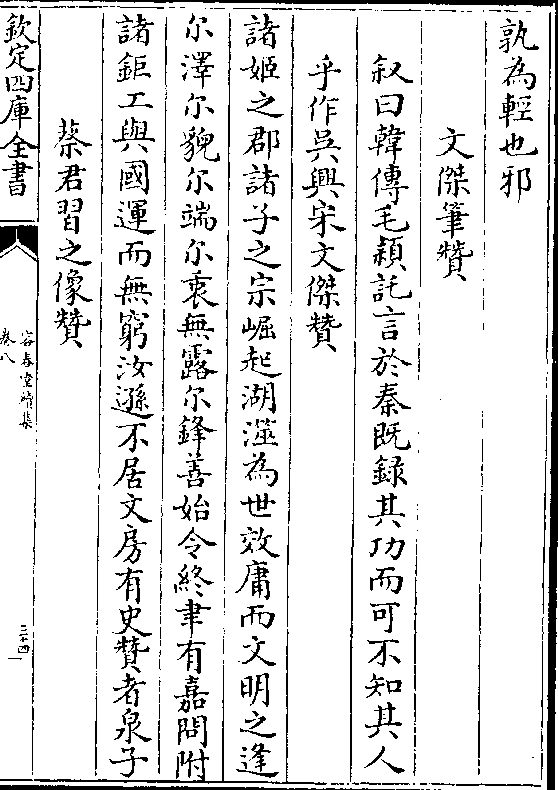 孰為輕也邪
文傑筆贊
叙曰韓傳毛穎託言於秦既録其功而可不知其人
乎作吳興宋文傑贊
諸姬之郡諸子之宗崛起湖澨為世效庸而文明之逢
尔澤尔貌尔端尔衷無露尔鋒善始令終聿有嘉問附
諸鉅工與國運而無窮汝遜不居文房有史贊者泉子
蔡君習之像贊
欽定四庫全書
容春堂續集
卷八
三十四